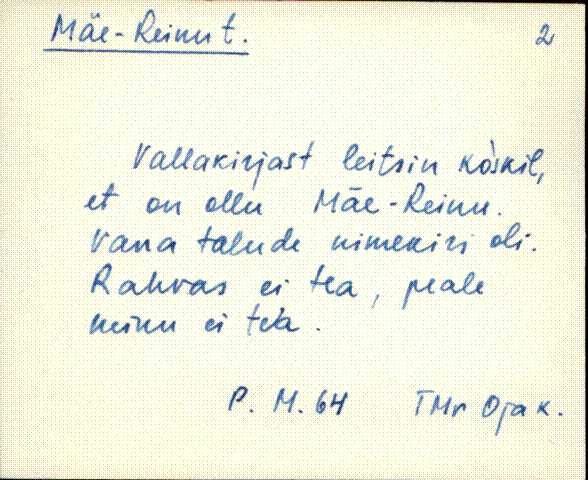 Mäe-Reinu t. 2
Vallakirjast leitsin kòskil,
et on ollu Mäe-Reinu.
Vana talude nimekiri oli.
Rahvas ei tea, peale
meinu ei tea.
P. M. 64 TMr Ojak.